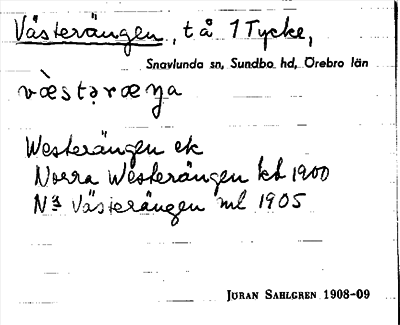 Västerängen, t å 1 Tycke,
Snavlunda sn, Sundbo hd, Örebro län
væ̀stəræŋa
Westerängen ek
Norra Westerängen kb 1900
Nª Västerängen ml 1905
Jöran Sahlgren 1908-09